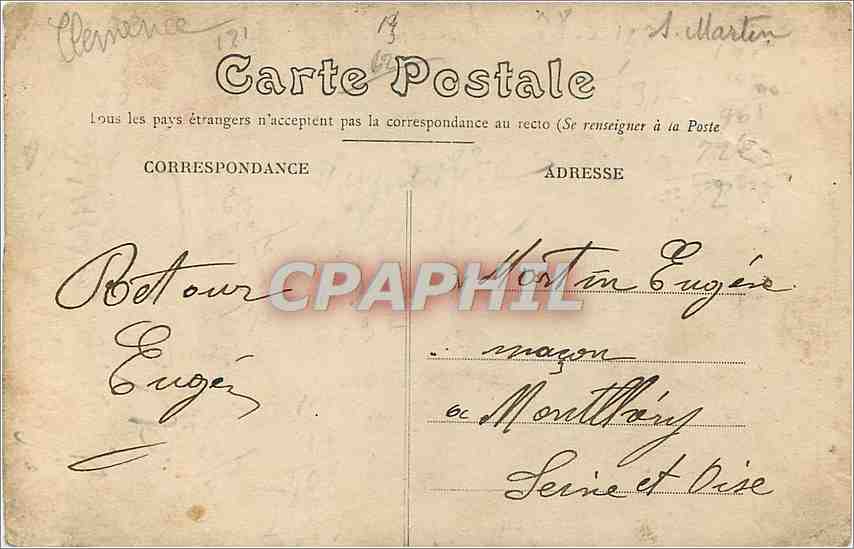 Clemence
121
13
62
A. Martin
Carte Postale
Tous les pays étrangers n'acceptent pas la correspondance au recto (Se renseigner à la Poste
CORRESPONDANCE
ADRESSE
722
2
Retour
Eugén
Mort in Eugéne
maçon
a Montlhéry
Seine et Oise
CPAPHIL